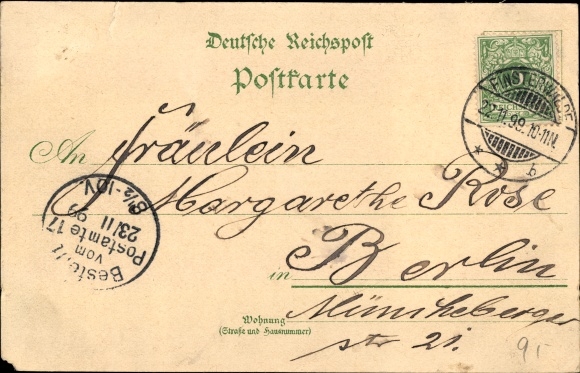 Deutsche Reichspost
Postkarte
FINSTERWALDE
22.11.99.10-11N.
* * b
An Fräulein
Margarethe Rose
in Berlin
Müncheberger
str 21.
Wohnung
(Straße und Hausnummer)
Bestellt
vom
Postamte 17
23/11 99
8½-10V.
9,-